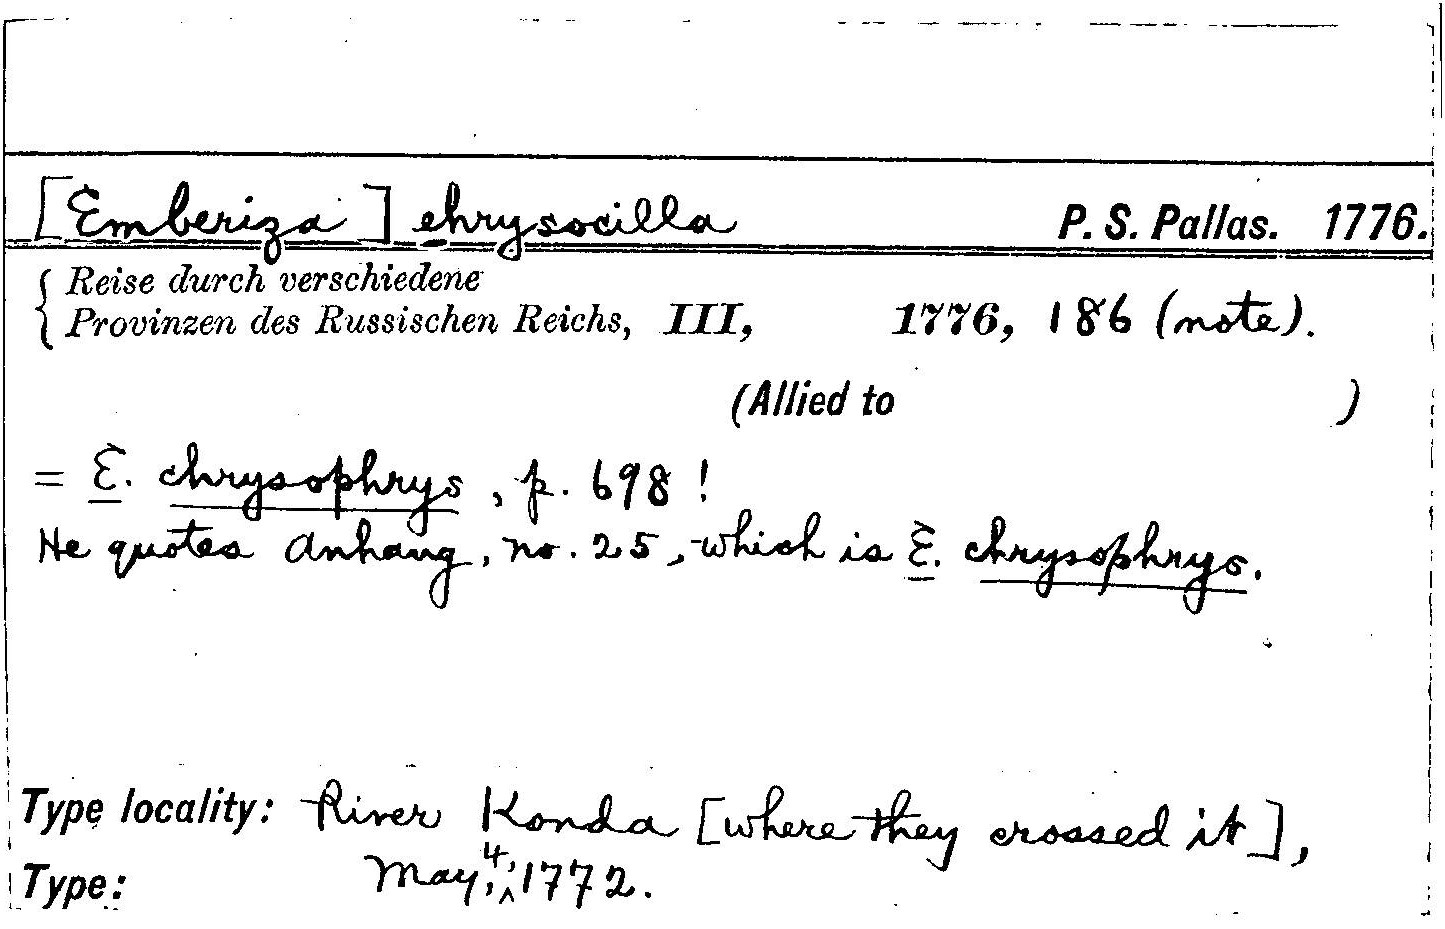 [Emberiza] chrysocilla P. S. Pallas. 1776.
Reise durch verschiedene
Provinzen des Russischen Reichs, III, 1776, 186 (note).
(Allied to )
= E. chrysophrys, p. 698!
He quotes Anhang, no. 25, which is E. chrysophrys.
Type locality: River Konda [where they crossed it],
Type: May, 4, 1772.